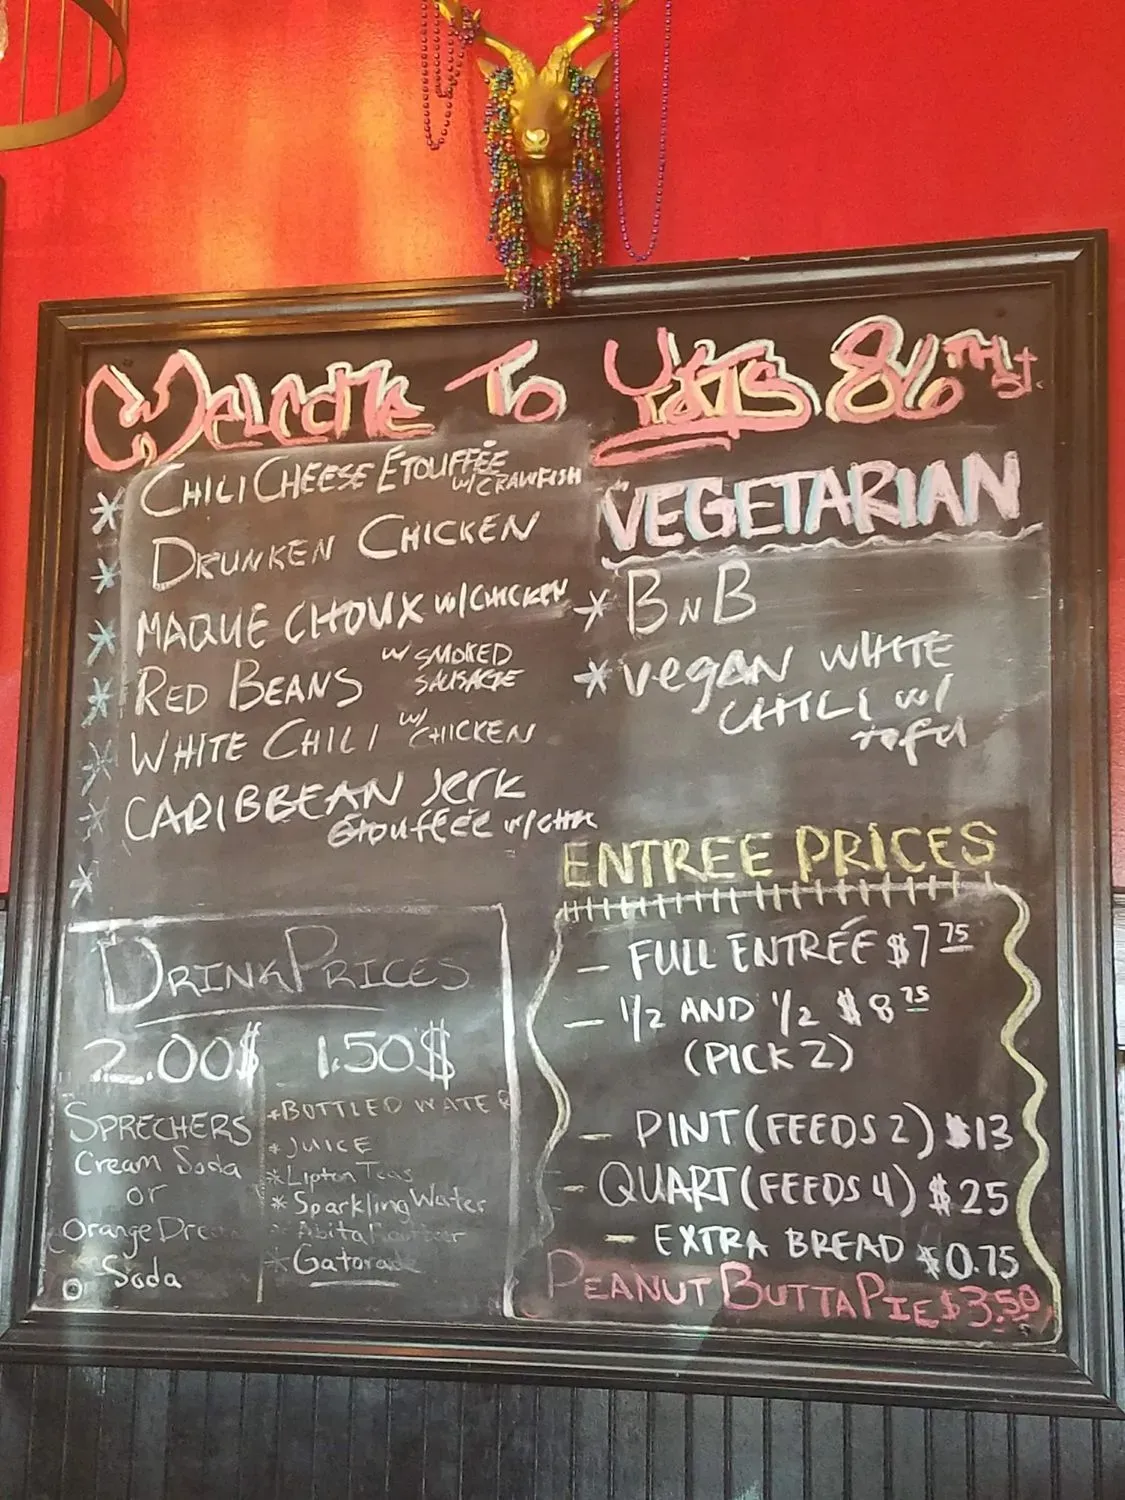 Welcome To Yats 86TH St.
* CHILI CHEESE ÉTOUFFÉE
w/CRAWFISH
* DRUNKEN CHICKEN
* MAQUE CHOUX w/CHICKEN
* RED BEANS w/ SMOKED
SAUSAGE
* WHITE CHILI w/ CHICKEN
* CARIBBEAN Jerk
Étouffée w/
*
VEGETARIAN
* B N B
* Vegan WHITE
CHILI w/
tofu
DRINK PRICES
2.00$
SPRECHERS
Cream Soda
or
Orange
Soda
1.50$
* BOTTLED WATER
* JUICE
* Lipton Teas
* Sparkling Water
* Abita
* Gatorade
ENTREE PRICES
- FULL ENTRÉE $7.75
- 1/2 AND 1/2 $8.75
(PICK 2)
- PINT (FEEDS 2) $13
- QUART (FEEDS 4) $25
- EXTRA BREAD $0.75
PEANUT BUTTA PIE $3.50